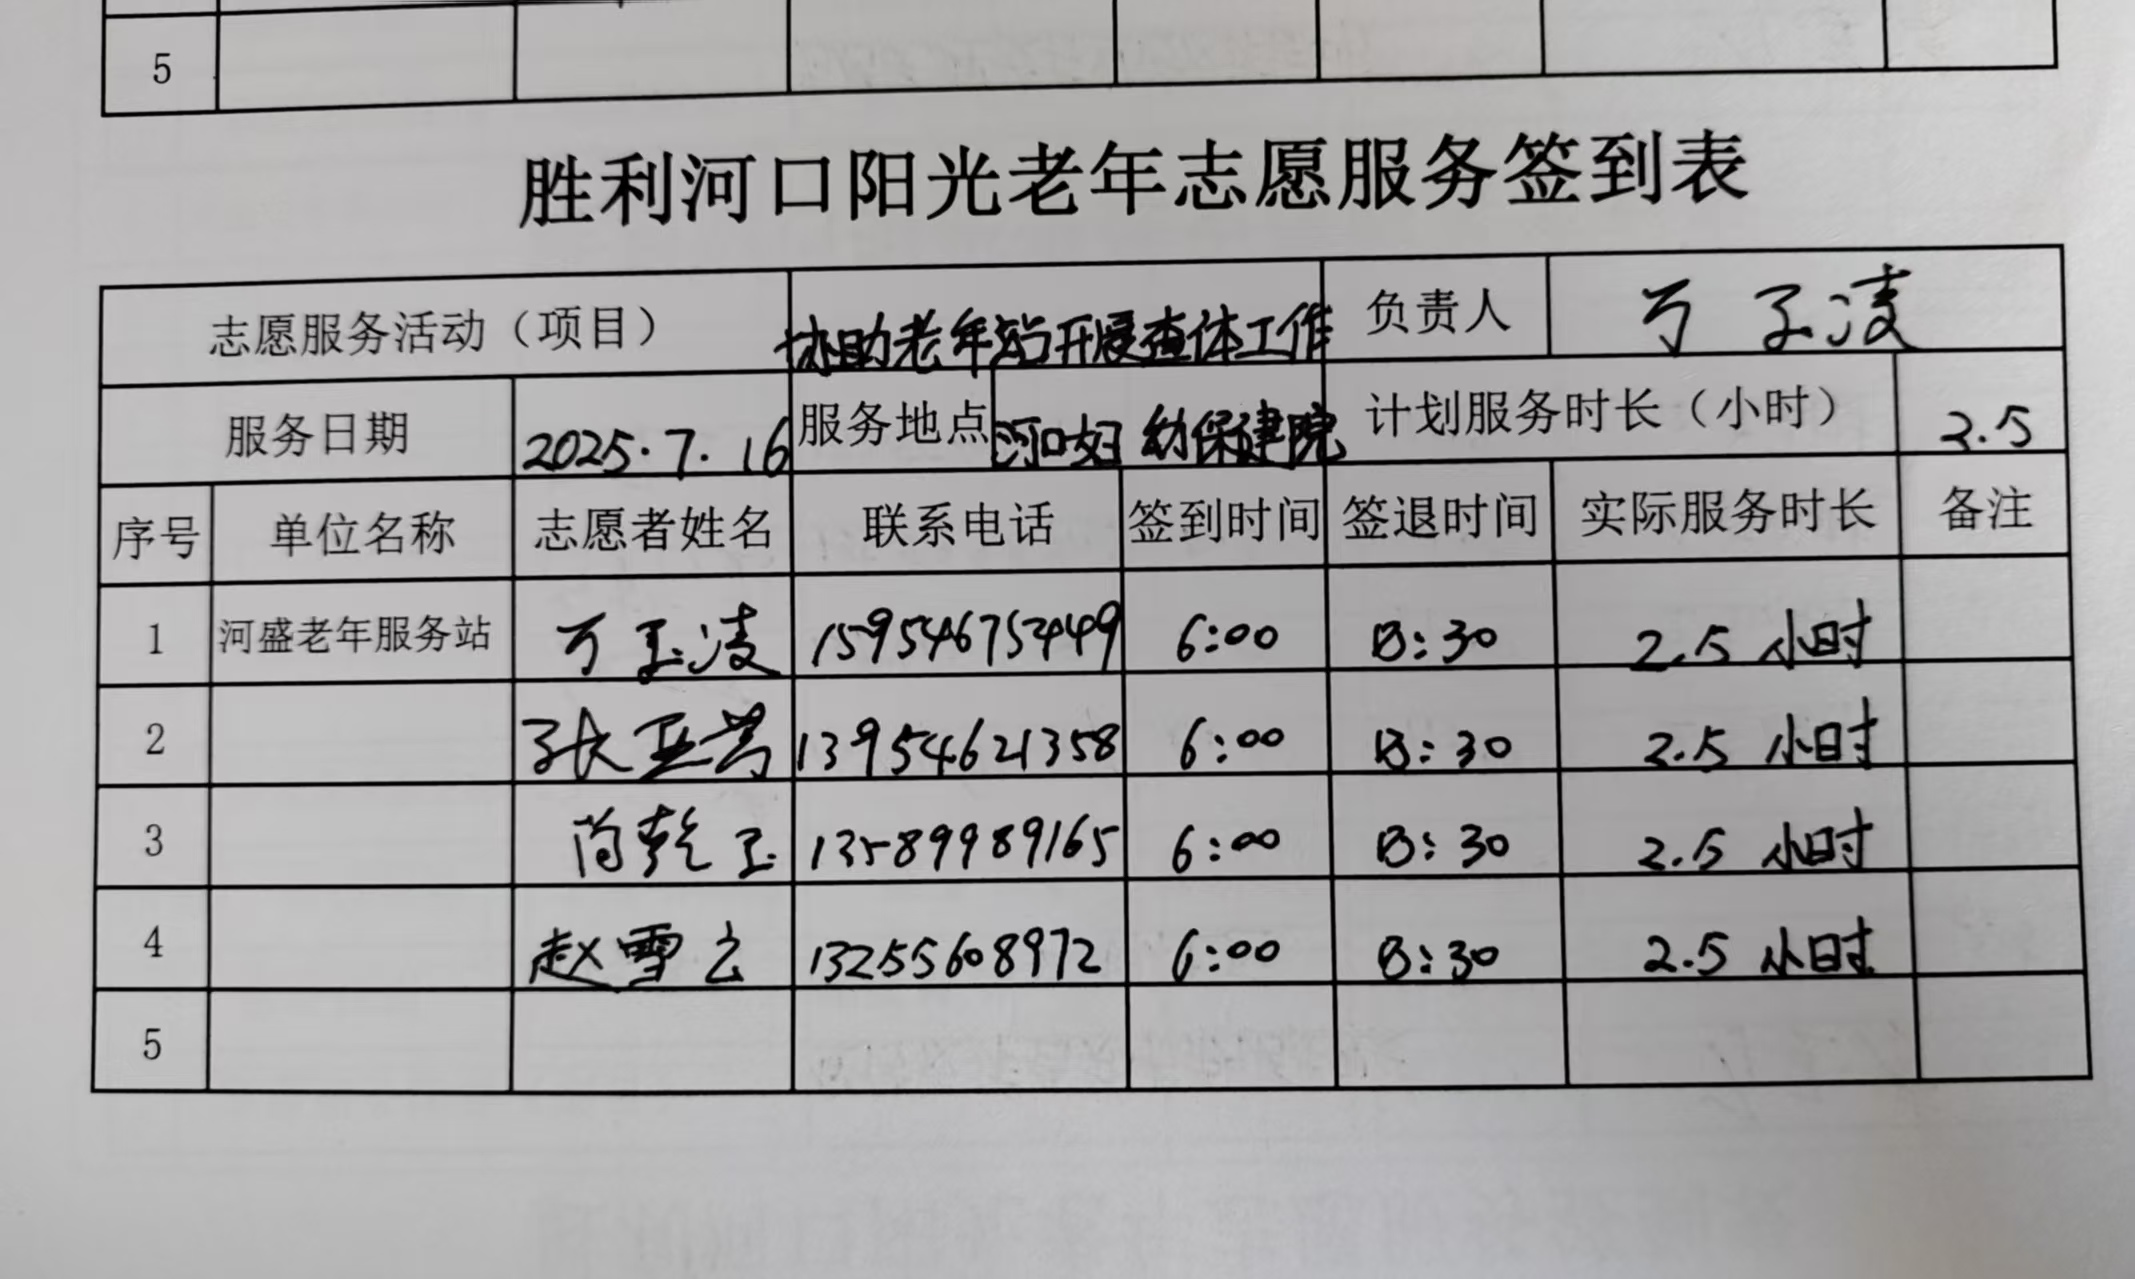 5
胜利河口阳光老年志愿服务签到表
志愿服务活动（项目） 协助老年站开展查体工作 负责人 丁玉凌
服务日期 2025.7.16 服务地点 河口妇幼保健院 计划服务时长（小时） 2.5
序号 单位名称 志愿者姓名 联系电话 签到时间 签退时间 实际服务时长 备注
1 河盛老年服务站 丁玉凌 6:00 8:30 2.5 小时
2 张 13954621358 6:00 8:30 2.5 小时
3 13589989165 6:00 8:30 2.5 小时
4 赵雪云 13255608972 6:00 8:30 2.5 小时
5